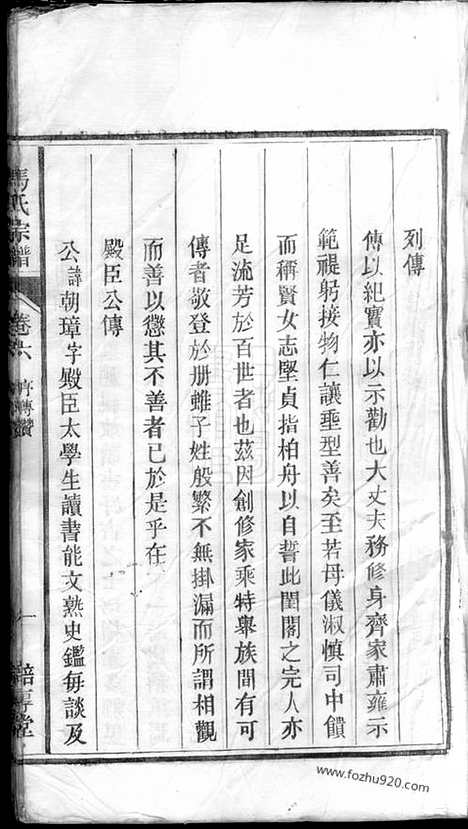 列傳
傳以紀實亦以示勸也大丈夫務修身齊家肅雍示
範禔躬接物仁讓垂型善矣至若母儀淑慎司中饋
而稱賢女志堅貞指柏舟以自誓此閨閣之完人亦
足流芳於百世者也茲因創修家乘特舉族間有可
傳者敬登於册雖子姓殷繁不無掛漏而所謂相觀
而善以懲其不善者已於是乎在
殿臣公傳
公諱朝璋字殿臣太學生讀書能文熟史鑑每談及
馬氏宗譜 卷 傳贊 一 堂
www.fozhu920.com